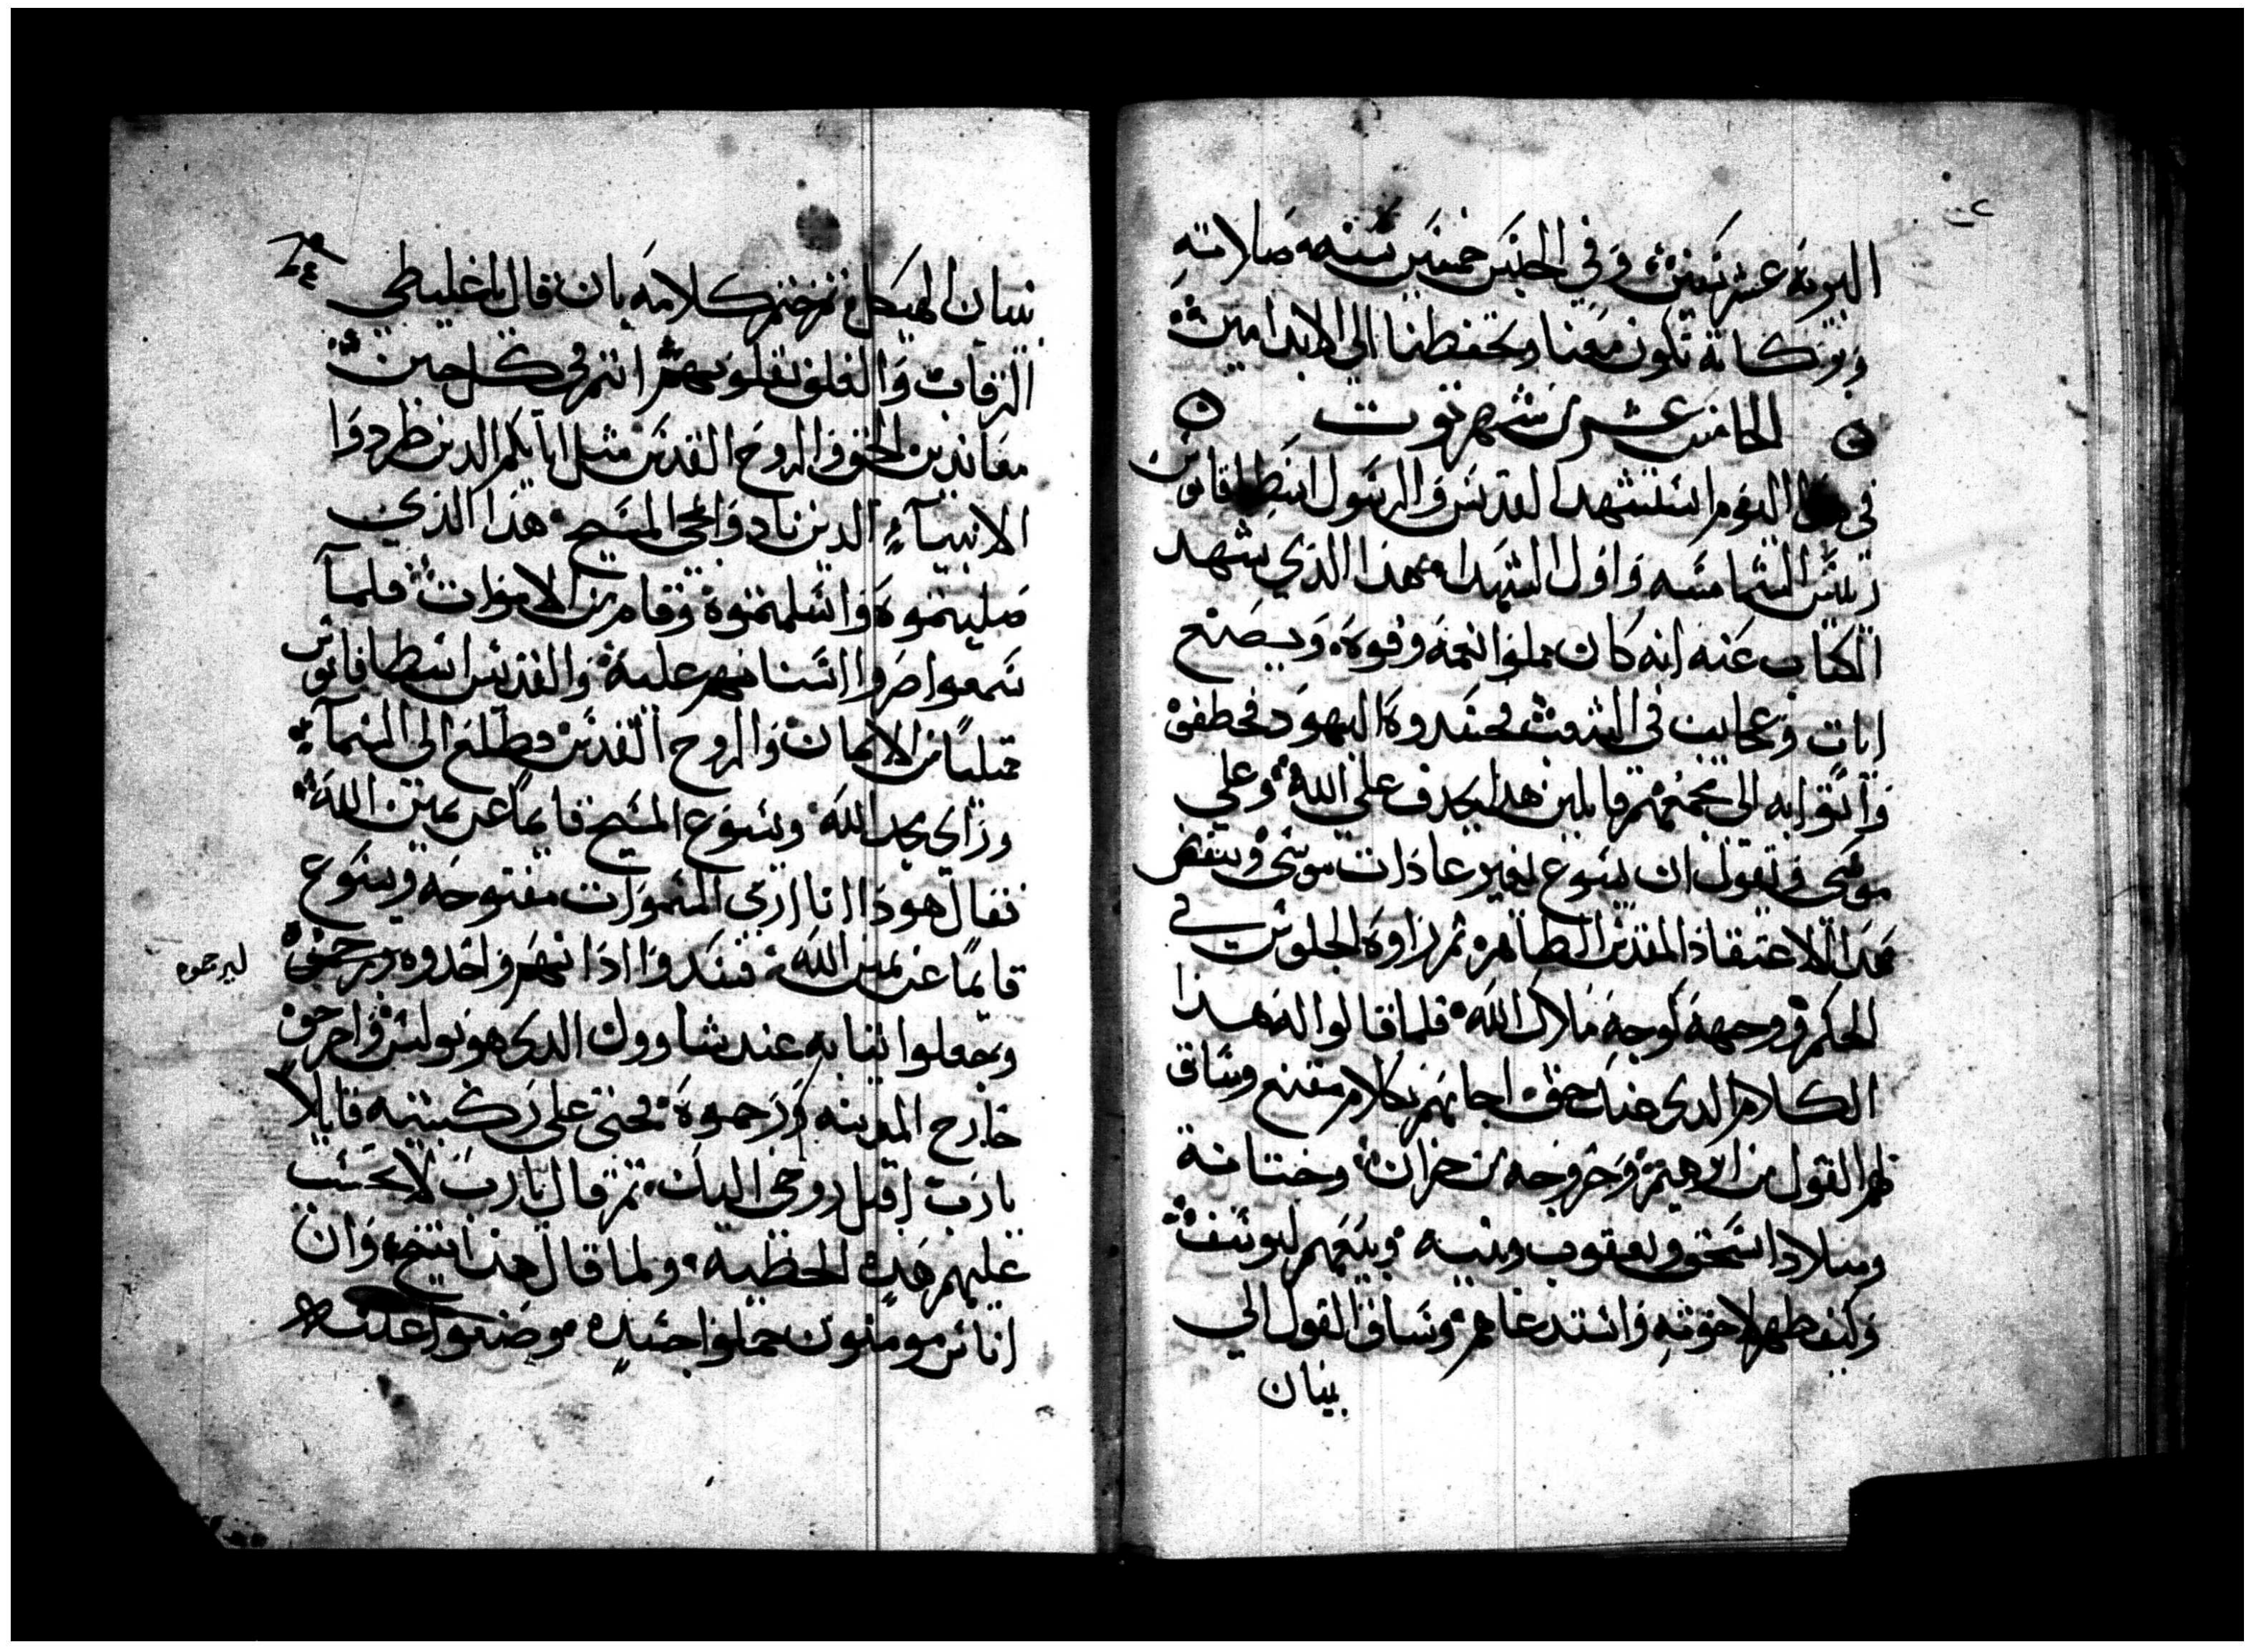 البريه عشر سنين وفي الحبس خمسين سنه صلاته
وبركاته تكون معنا وتحفظنا الي الابد امين
الخامس عشر من شهر توت
في هذا اليوم استشهد القديس والرسول اسطافانوس
رييس الشمامسه واول الشهداء هذا الذي يشهد
الكتاب عنه انه كان مملوا نعمه وقوه ويصنع
ايات وعجايب في الشعب فحسدوه اليهود فخطفوه
واتوا به الي مجمعهم قايلين هذا يجدف علي الله وعلي
موسي ويقول ان يسوع يغير عادات موسي وينقض
هذا المقدس الطاهر ثم راوه الجلوس في
الحكم ووجهه كوجه ملاك الله فلما قالوا له هذا
الكلام الذي حق اجابهم بكلام مقنع وساق
لهم القول من ابرهيم وخروجه من حران وختانه
وميلاد اسحق ويعقوب وبنيه وبيعهم ليوسف
وكيف ظهر لاخوته واستدعاهم وساق القول الي
بنيان
٢٤
بنيان الهيكل ثم ختم كلامه بان قال يا غليظي
الرقاب والغلف بقلوبهم انتم في كل حين
معاندين الحق والروح القدس مثل ابايكم الذين طردوا
الانبياء الذين نادوا بمجي المسيح هذا الذي
صلبتموه واسلمتموه وقام من الاموات فلما
سمعوا صروا اسنانهم عليه والقديس اسطافانوس
ممتليا من الايمان والروح القدس وطلع الي السماء
وراي مجد الله ويسوع المسيح قايما عن يمين الله
فقال هوذا انا اري السموات مفتوحه ويسوع
قايما عن يمين الله فسدوا اذانهم واخدوه ورجموه
ليرجموه
وجعلوا ثيابه عند شاوول الدي هو بولس واخرجوه
خارج المدينه ورجموه فجثي علي ركبتيه قايلا
يارب اقبل روحي اليك ثم قال يارب لا تحسب
عليهم هده الخطيه ولما قال هذا انتيح وان
اناس مومنون حملوا جسده وصنعوا عليه